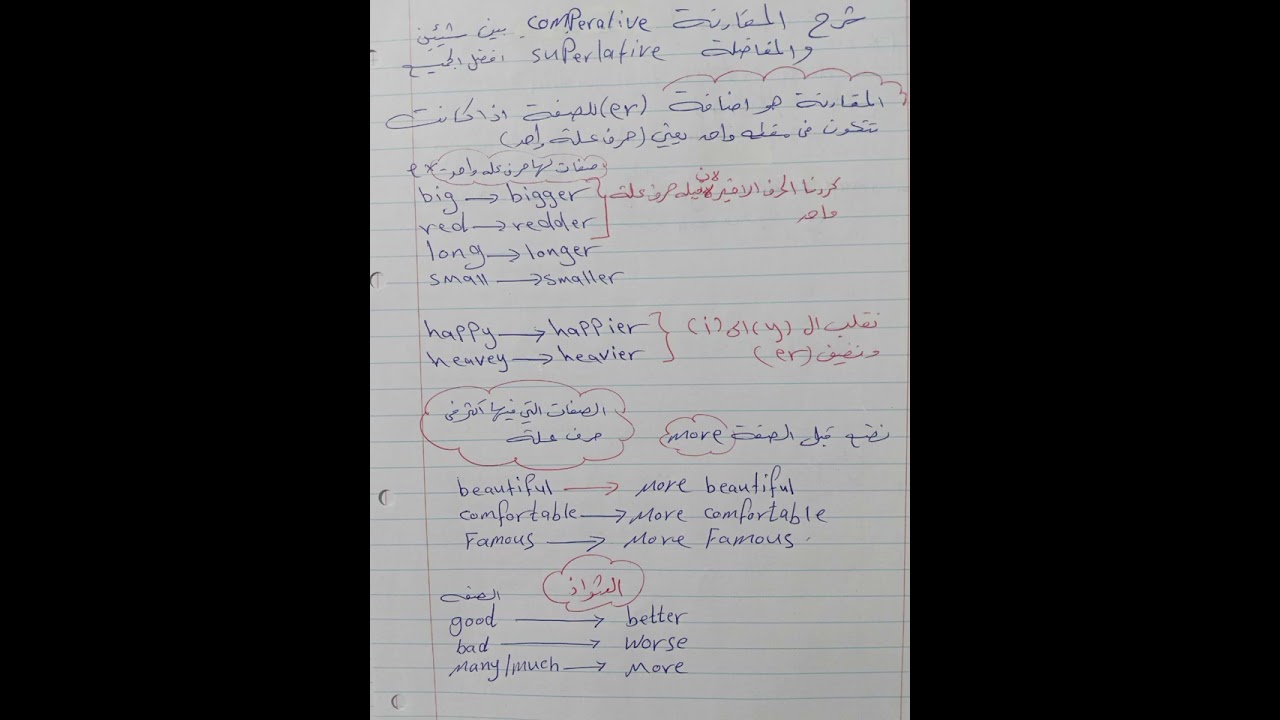 شرح المقارنة comperative بين شيئين
والمفاضلة superlative افضل الجميع
المقارنة هو اضافة (er) للصفة اذا كانت
تتكون من مقطع واحد يعني (حرف علة واحد)
ex- صفات لها حرف علة واحد
big → bigger
red → redder
كررنا الحرف الاخير لان قبله حرف علة
واحد
long → longer
small → smaller
happy → happier
heavey → heavier
نقلب ال (y) الى (i)
ونضيف (er)
الصفات التي فيها اكثر من
حرف علة
نضع قبل الصفة more
beautiful → more beautiful
comfortable → more comfortable
Famous → more Famous.
الشواذ
الصفه
good → better
bad → worse
many/much → more